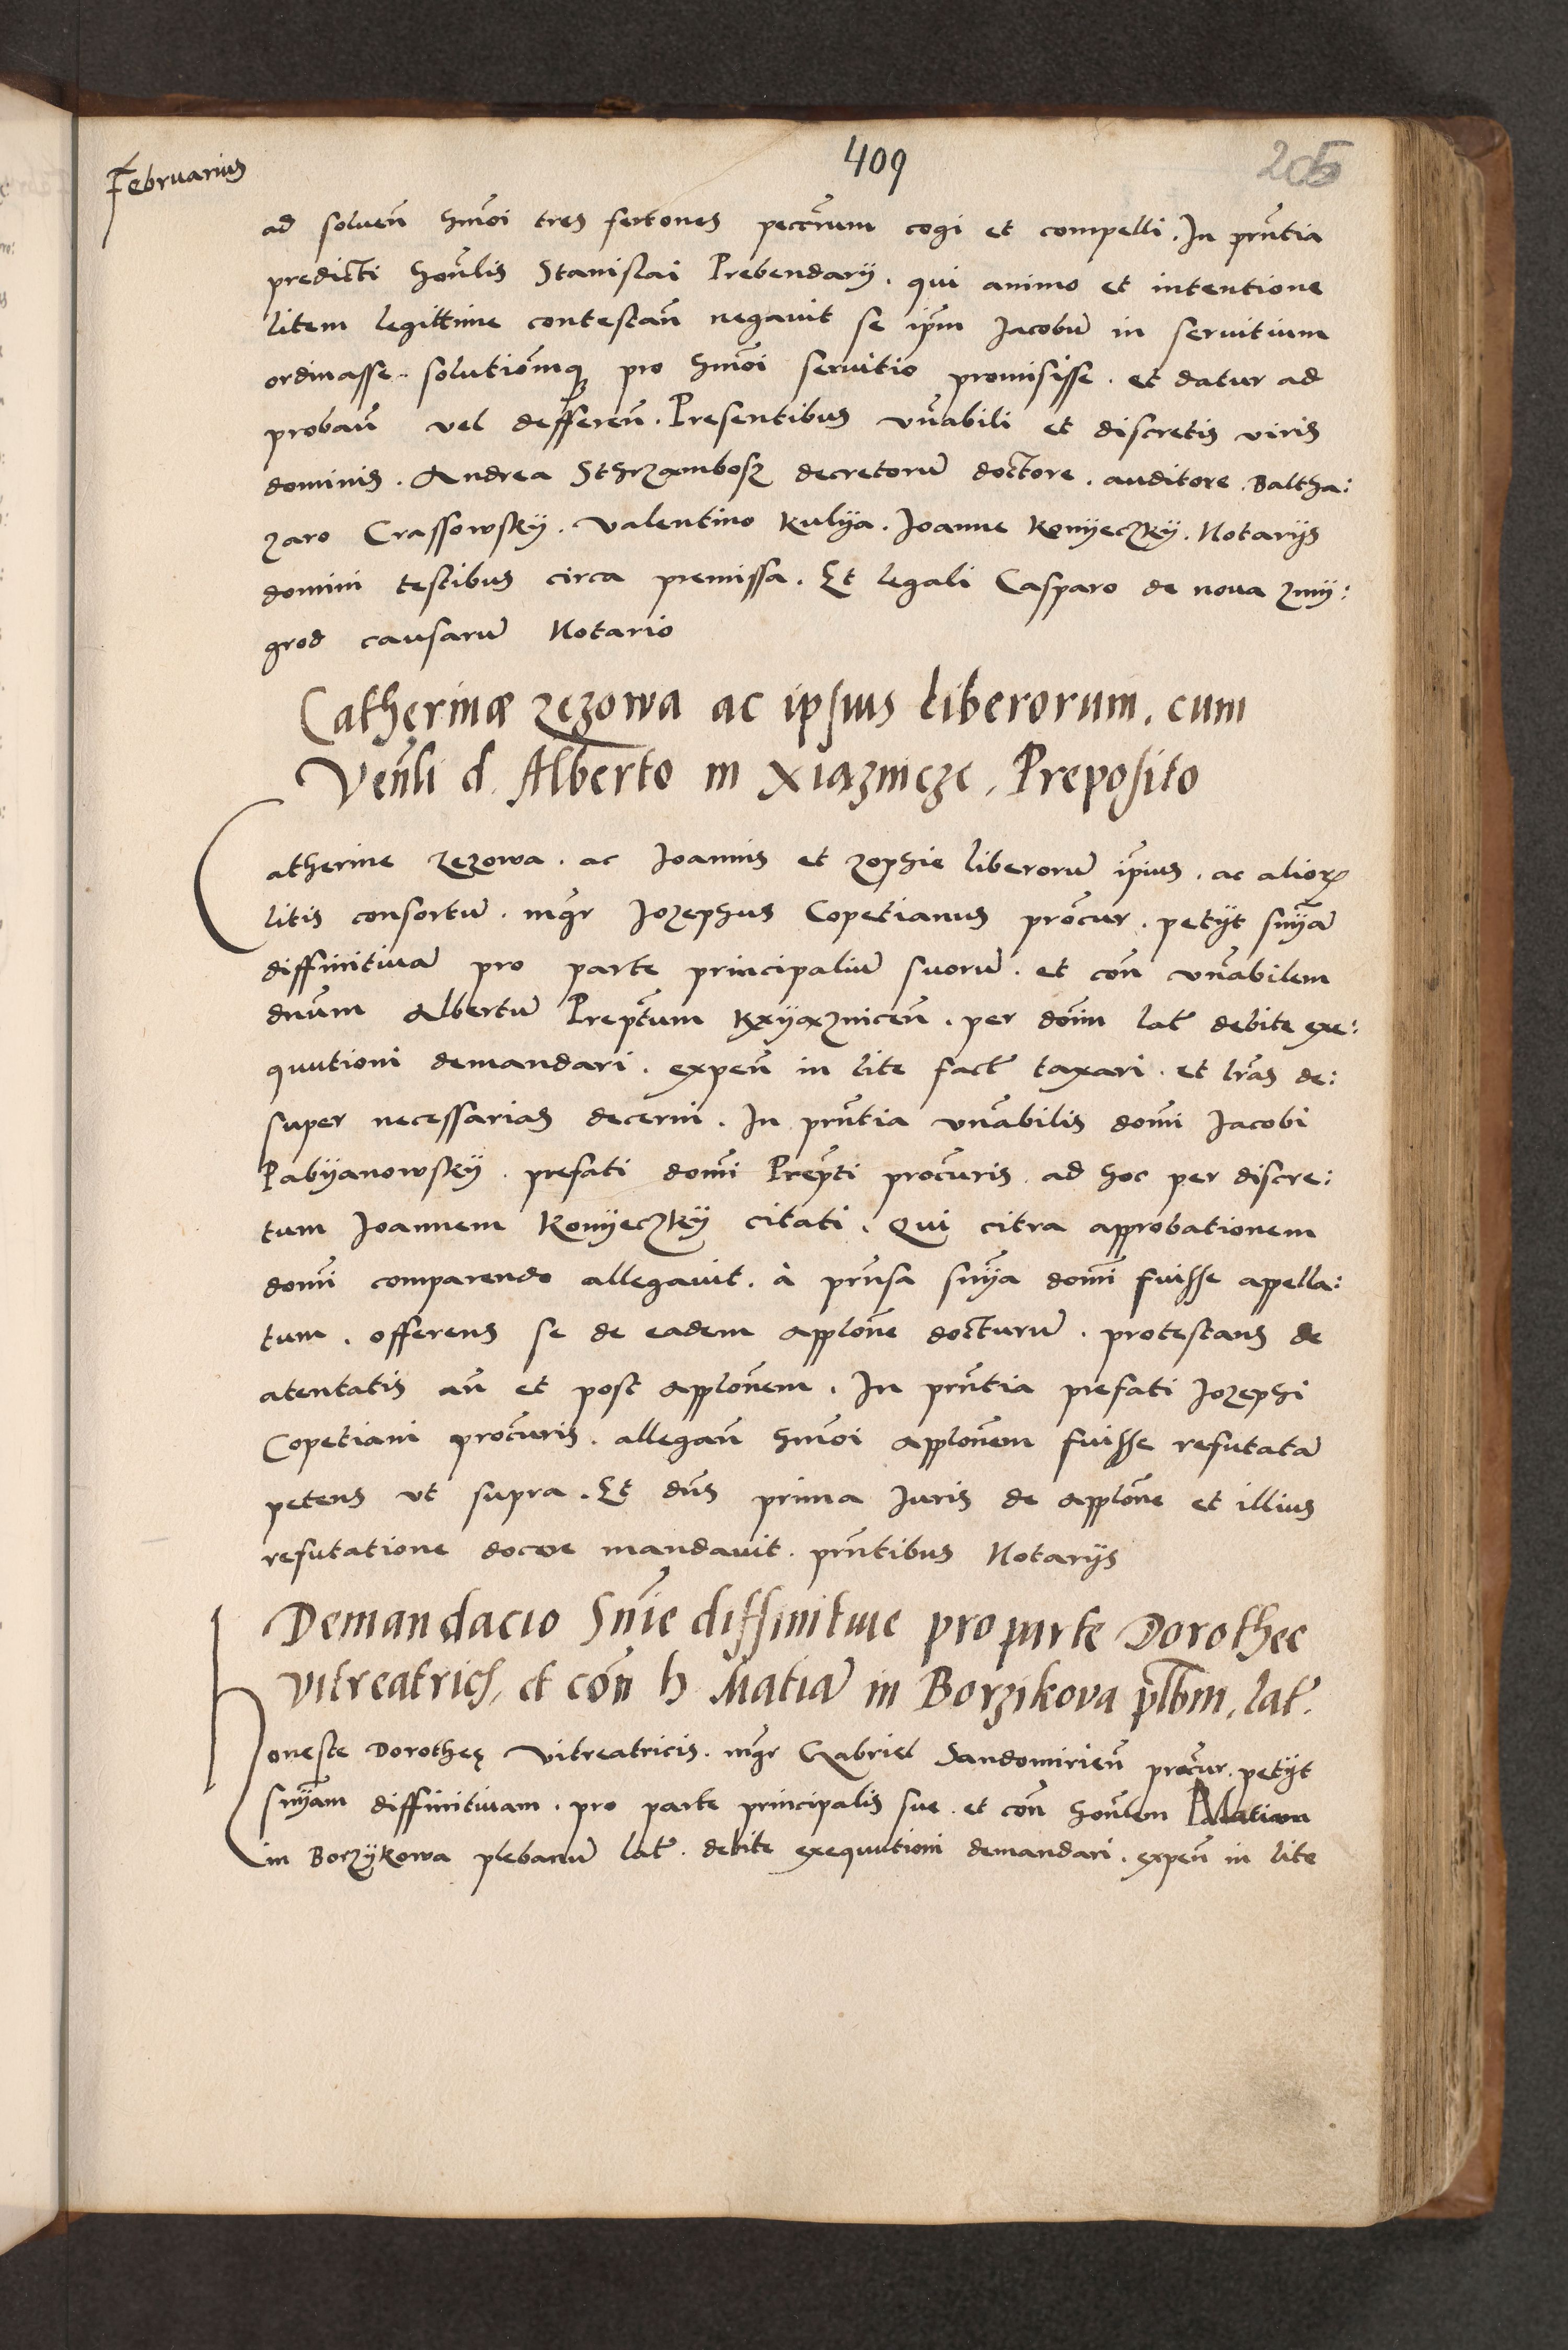 Februarius
409
205
ad solueñ hmõi tres fertones peccũrum cogi et compelli. In pñtia
predicti hoñlis Stanislai Prebendarÿ. qui animo et intentione
litem legittime contestañ negavit se ip̃m Jacobũ in servitium
ordinasse. solutiõmq̨ pro hmõi servitio promisisse. et datur ad
probañ vel defferen̄. Presentibus vñabili et discretis viris
dominis. Andrea Sthrzambosz decretorũ doctore. auditore. Baltha:
zaro Crassowskÿ. Valentino Kulÿa. Joanne Konÿeczkÿ. Notarÿs
domini testibus circa premissa. Et legali Casparo de nova Zmÿ:
grod causarũ Notario
Catherinæ Zęzowa ac ipsius liberorum. cum
Veñli d. Alberto in Xiąznicze. Preposito
Catherine Zęzowa. ac Joannis et Zophie liberorũ ip̃ius. ac alioꝝ
litis consortũ. mgr̃ Jozephus Copetianus procũr. petÿt sñÿã
diffinitivã pro parte principaliũ suorũ. et coñ vñabilem
dnũm Albertũ Prep̃tum Kxÿąznicen̄. per dom̃ lat̃ debite exe:
quutioni demandari. expeñ in lite fact̃ taxari. et lr̃as de:
super necessarias decerni. In pñtia vñabilis dom̃i Jacobi
Pabÿanowskÿ. prefati dom̃i Prep̃ti procũris. ad hoc per discre:
tum Joannem Konÿeczkÿ citati. Qui citra approbationem
dom̃i comparendo allegavit. à prẽnsa sñÿa dom̃i fuisse appella:
tum. offerens se de eadem applõne docturũ. protestans de
atentatis añ et post applõnem. In pñtia prefati Jozephi
Copetiani procũris. allegañ hmõi applõnem fuisse refutatã
petens vt supra. Et dñs prima Juris de applõne et illius
refutatione docere mandavit. pñtibus Notarÿs
Demandacio Sñie diffinitive pro parte Dorothee
vitreatricis, et coñ h Matiã in Borzikova pl̃bm, lat̃.
Honeste Dorotheę Vitreatricis. mgr̃ Gabriel Sandomirien̄ procũr. petÿt
sñÿam diffinitivam. pro parte principalis sue. et coñ hoñlem Matiam
in Borzÿkowa plebanũ lat̃. debite exequutioni demandari. expeñ in lite